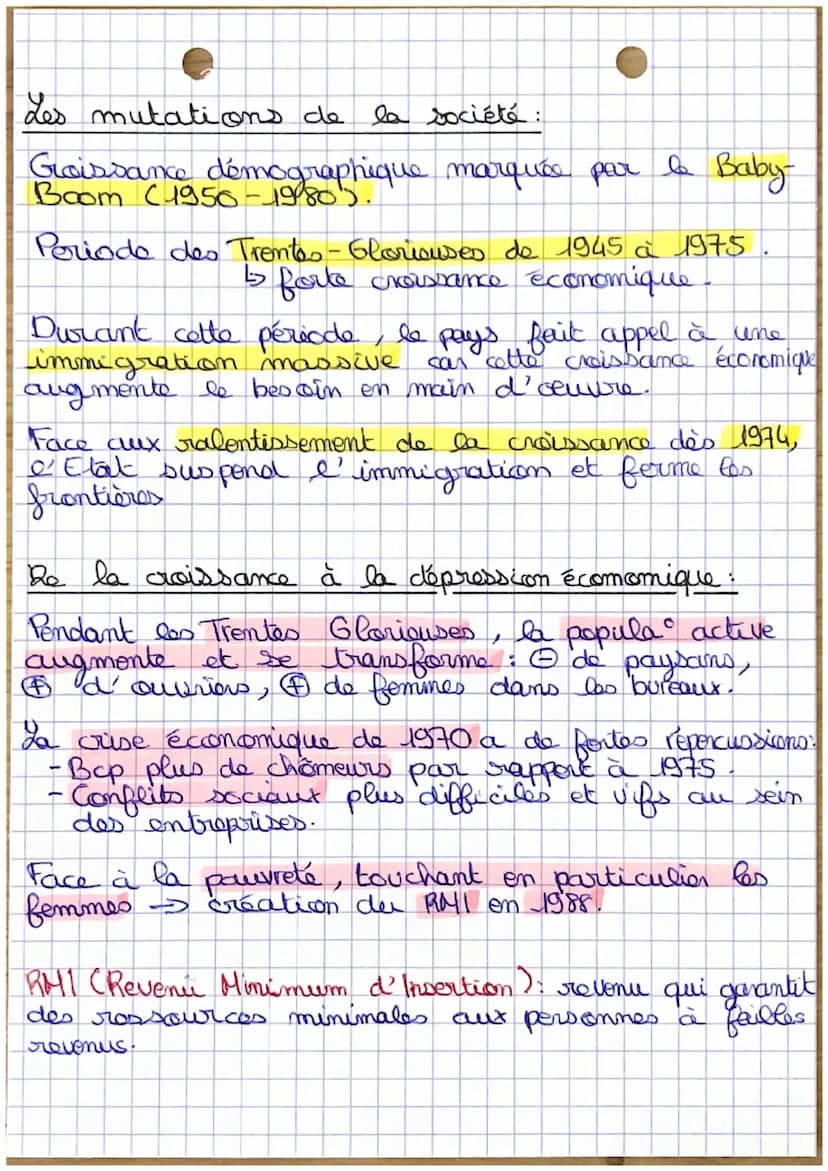 Les mutations de la société :
Croissance démographique marquée par le Baby-
Boom (1950-1980).
Periode des Trentes-Glorieuses de 1945 à 1975.
↳ forte croissance économique.
Durant cette période, le pays fait appel à une
immigration massive car cette croissance économique
augmente le besoin en main d'œuvre.
Face aux ralentissement de la croissance dès 1974,
l'Etat suspend l'immigration et ferme les
frontières
De la croissance à la dépression économique :
Pendant les Trentes Glorieuses, la popula° active
augmente et se transforme : ⊖ de paysans,
⊕ d'ouvriers, ⊕ de femmes dans les bureaux.
La crise économique de 1970 a de fortes répercussions:
- Bcp plus de chômeurs par rapport à 1975.
- Conflits sociaux plus difficiles et vifs au sein
des entreprises.
Face à la pauvreté, touchant en particulier les
femmes → création du RMI en 1988.
RMI (Revenu Minimum d'Insertion): revenu qui garantit
des ressources minimales aux personnes à faibles
revenus.